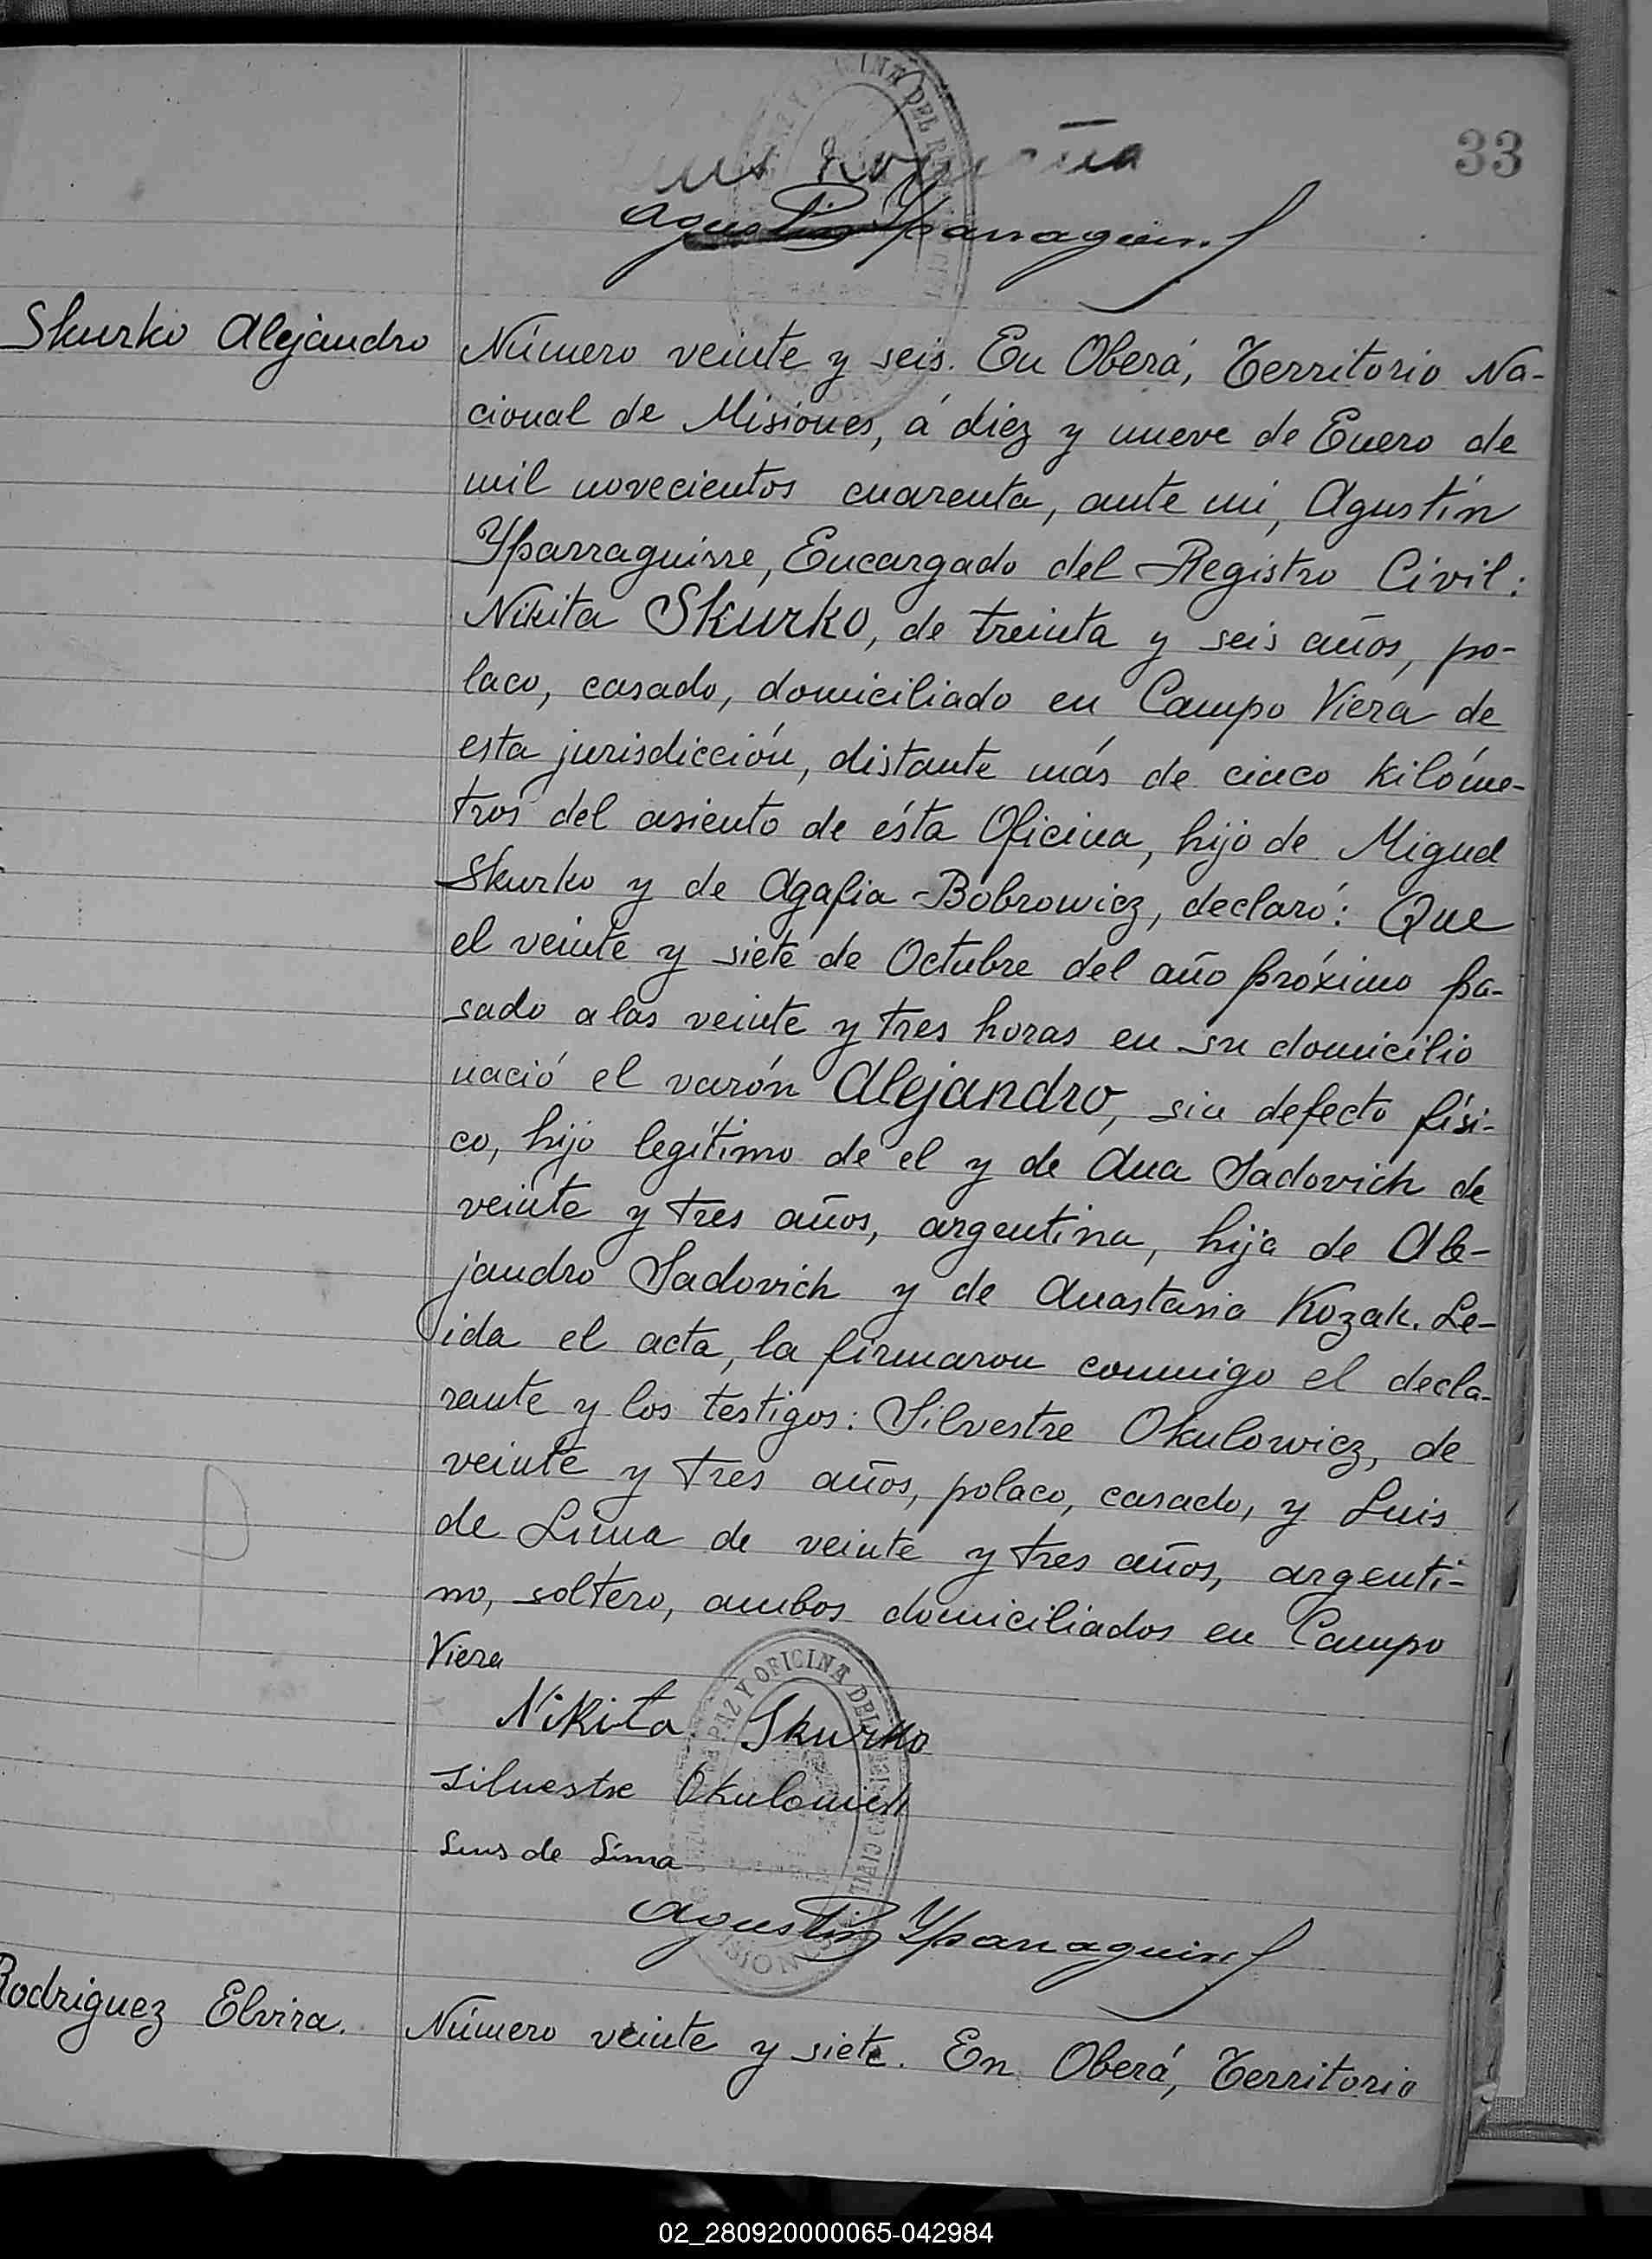 33
Agustin Yparraguirre
Skurko Alejandro
Número veinte y seis. En Oberá, Territorio Na-
cional de Misiones, á diez y nueve de Enero de
mil novecientos cuarenta, ante mi, Agustín
Yparraguirre, Encargado del Registro Civil:
Nikita Skurko, de treinta y seis años, po-
laco, casado, domiciliado en Campo Viera de
esta jurisdicción, distante más de cinco kilóme-
tros del asiento de ésta Oficina, hijo de Miguel
Skurko y de Agafia Bobrowicz, declaró: Que
el veinte y siete de Octubre del año próximo pa-
sado a las veinte y tres horas en su domicilio
nació el varón Alejandro, sin defecto físi-
co, hijo legítimo de el y de Ana Sadovich de
veinte y tres años, argentina, hija de Ale-
jandro Sadovich y de Anastasia Kozak. Le-
ida el acta, la firmaron conmigo el decla-
rante y los testigos: Silvestre Okulowicz, de
veinte y tres años, polaco, casado, y Luis
de Lima de veinte y tres años, argenti-
no, soltero, ambos domiciliados en Campo
Viera
Nikita Skurko
Silvestre Okulowich
Luis de Lima
PAZ Y OFICINA DEL REGISTRO CIVIL
MISIONES
Agustin Yparraguirre
Rodriguez Elvira.
Número veinte y siete. En Oberá, Territorio
02_280920000065-042984